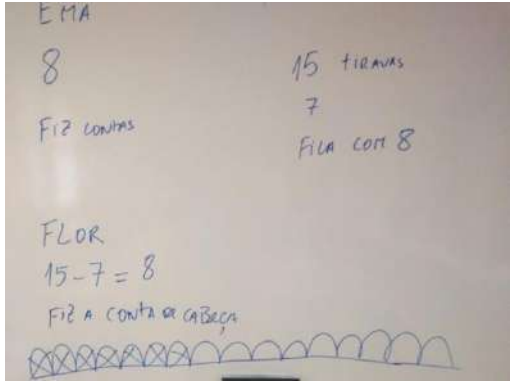 EMA
8
FIZ CONTAS
15 TIRAVAS
7
FICA COM 8
FLOR
15-7=8
FIZ A CONTA DE CABEÇA